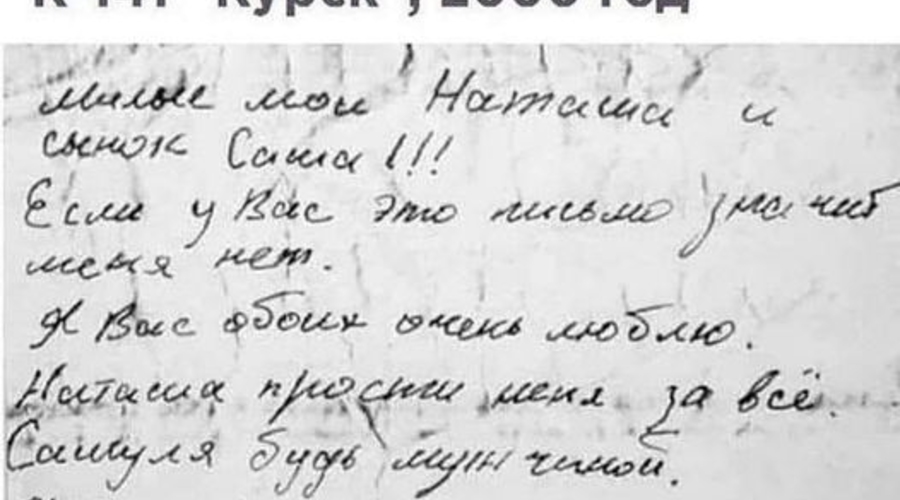 "Курск", 2000 год
милые мои Наташа и
сынок Саша!!!
Если у Вас это письмо значит
меня нет.
Я Вас обоих очень люблю.
Наташа прости меня за всё.
Сашуля будь мужчиной.